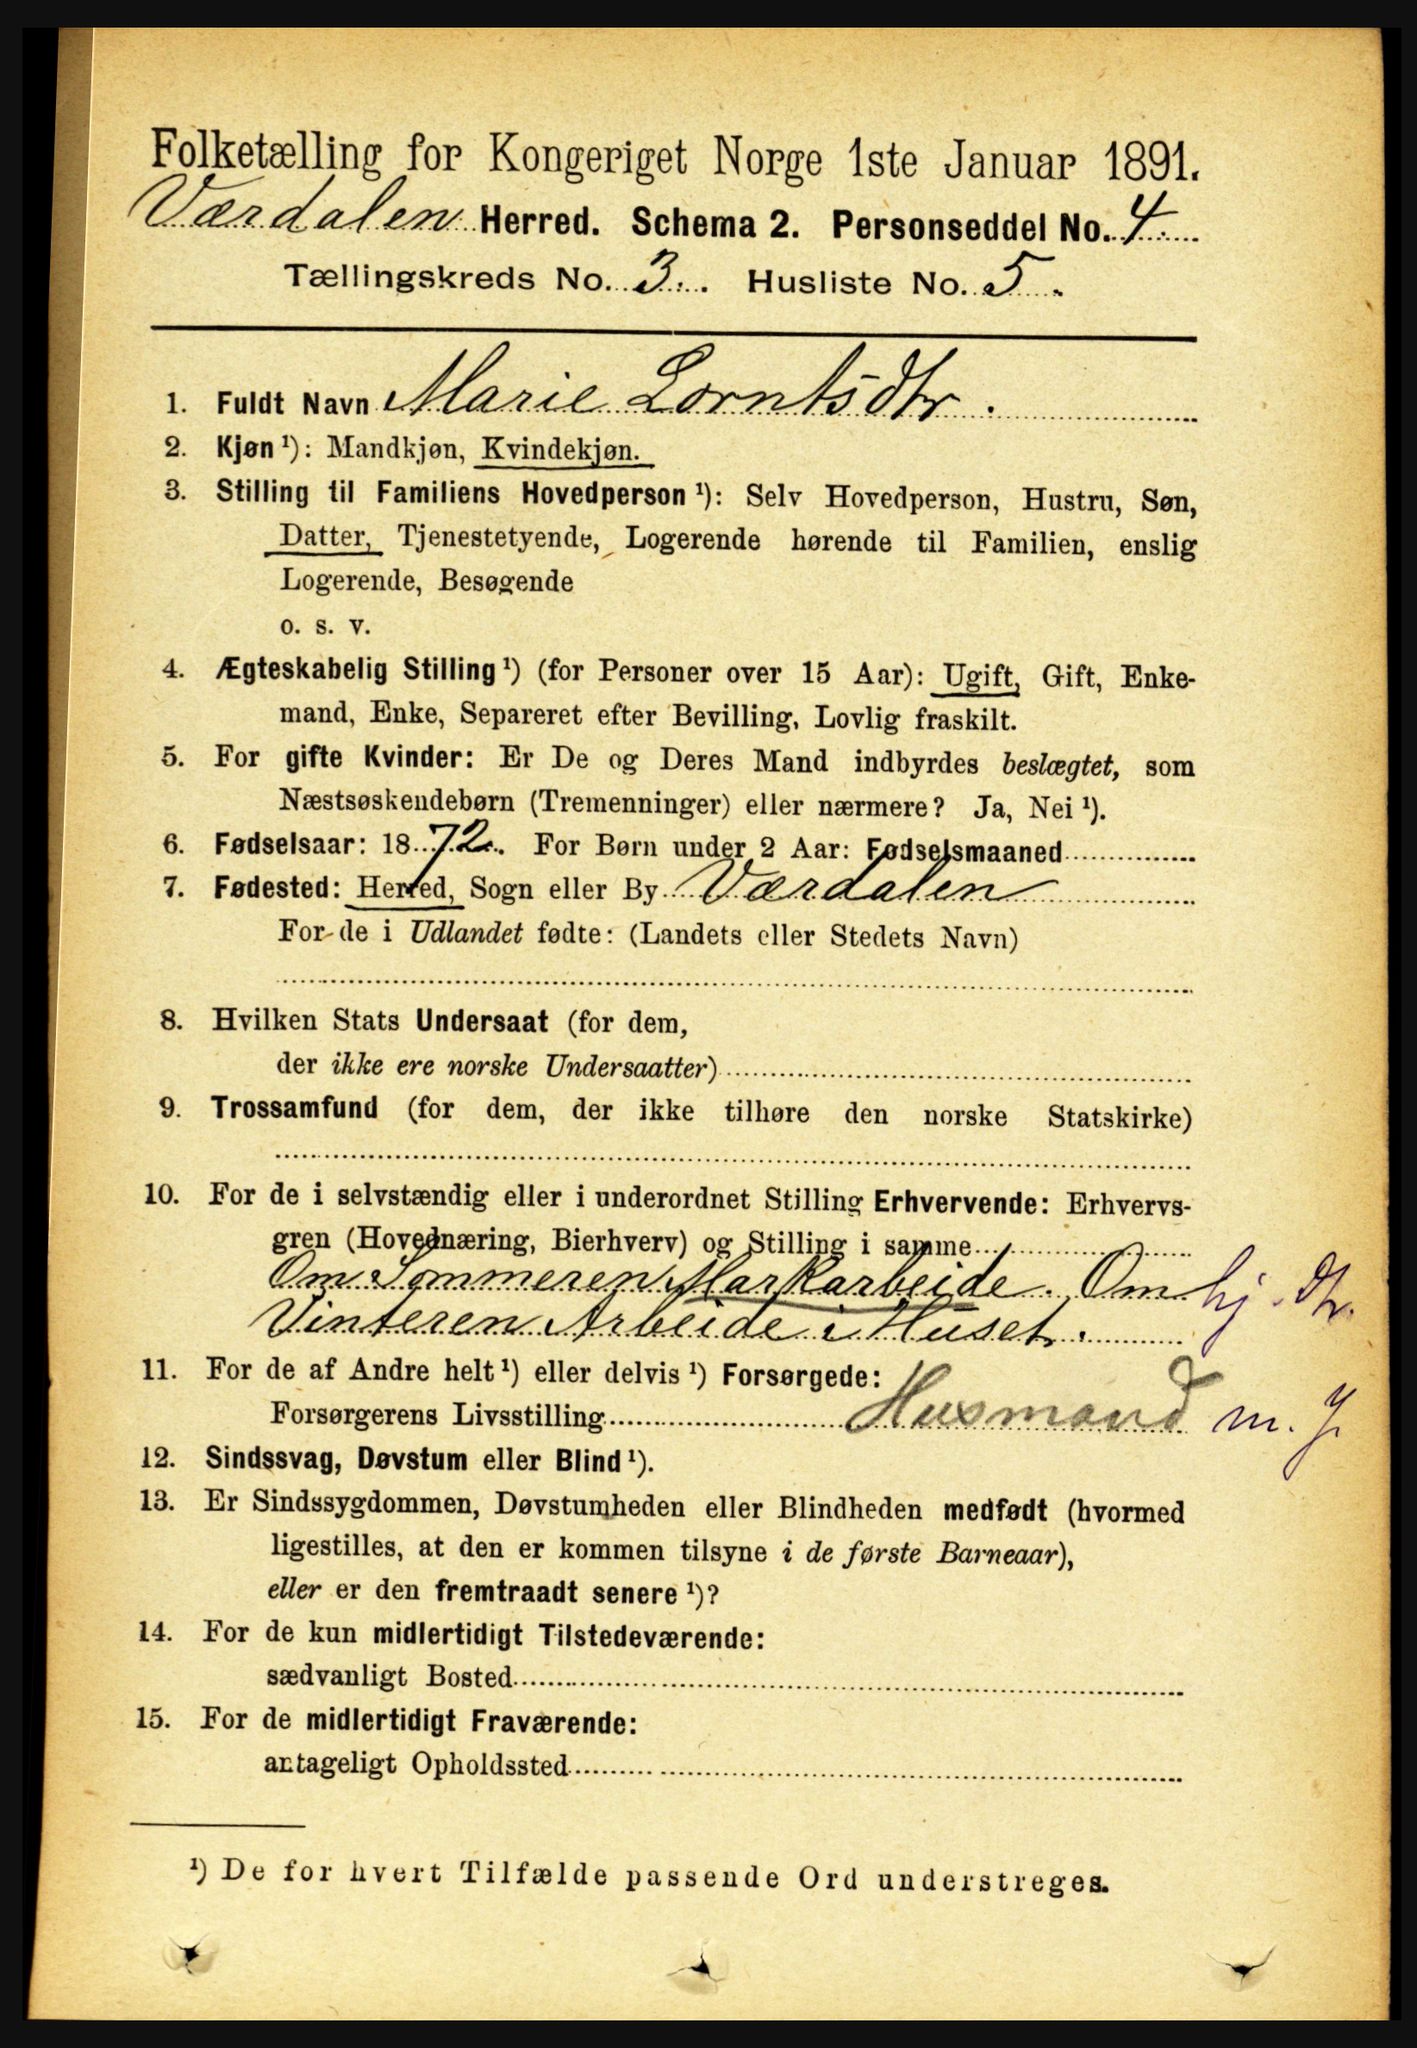 Folketælling for Kongeriget Norge 1ste Januar 1891.
Værdalen Herred. Schema 2. Personseddel No. 4.
Tællingskreds No. 3. Husliste No. 5.
1. Fuldt Navn Marie Lorntsdtr.
2. Kjøn ¹): Mandkjøn, Kvindekjøn.
3. Stilling til Familiens Hovedperson ¹): Selv Hovedperson, Hustru, Søn,
Datter, Tjenestetyende, Logerende hørende til Familien, enslig
Logerende, Besøgende
o. s. v.
4. Ægteskabelig Stilling ¹) (for Personer over 15 Aar): Ugift, Gift, Enke-
mand, Enke, Separeret efter Bevilling, Lovlig fraskilt.
5. For gifte Kvinder: Er De og Deres Mand indbyrdes beslægtet, som
Næstsøskendebørn (Tremenninger) eller nærmere? Ja, Nei ¹).
6. Fødselsaar: 1872. For Børn under 2 Aar: Fødselsmaaned
7. Fødested: Herred, Sogn eller By Værdalen
For de i Udlandet fødte: (Landets eller Stedets Navn)
8. Hvilken Stats Undersaat (for dem,
der ikke ere norske Undersaatter)
9. Trossamfund (for dem, der ikke tilhøre den norske Statskirke)
10. For de i selvstændig eller i underordnet Stilling Erhvervende: Erhvervs-
gren (Hovednæring, Bierhverv) og Stilling i samme
Om Sommeren Markarbeide. Om hj. dtr.
Vinteren Arbeide i Huset.
11. For de af Andre helt ¹) eller delvis ¹) Forsørgede:
Forsørgerens Livsstilling Husmand m. J.
12. Sindssvag, Døvstum eller Blind ¹).
13. Er Sindssygdommen, Døvstumheden eller Blindheden medfødt (hvormed
ligestilles, at den er kommen tilsyne i de første Barneaar),
eller er den fremtraadt senere ¹)?
14. For de kun midlertidigt Tilstedeværende:
sædvanligt Bosted
15. For de midlertidigt Fraværende:
antageligt Opholdssted
¹) De for hvert Tilfælde passende Ord understreges.